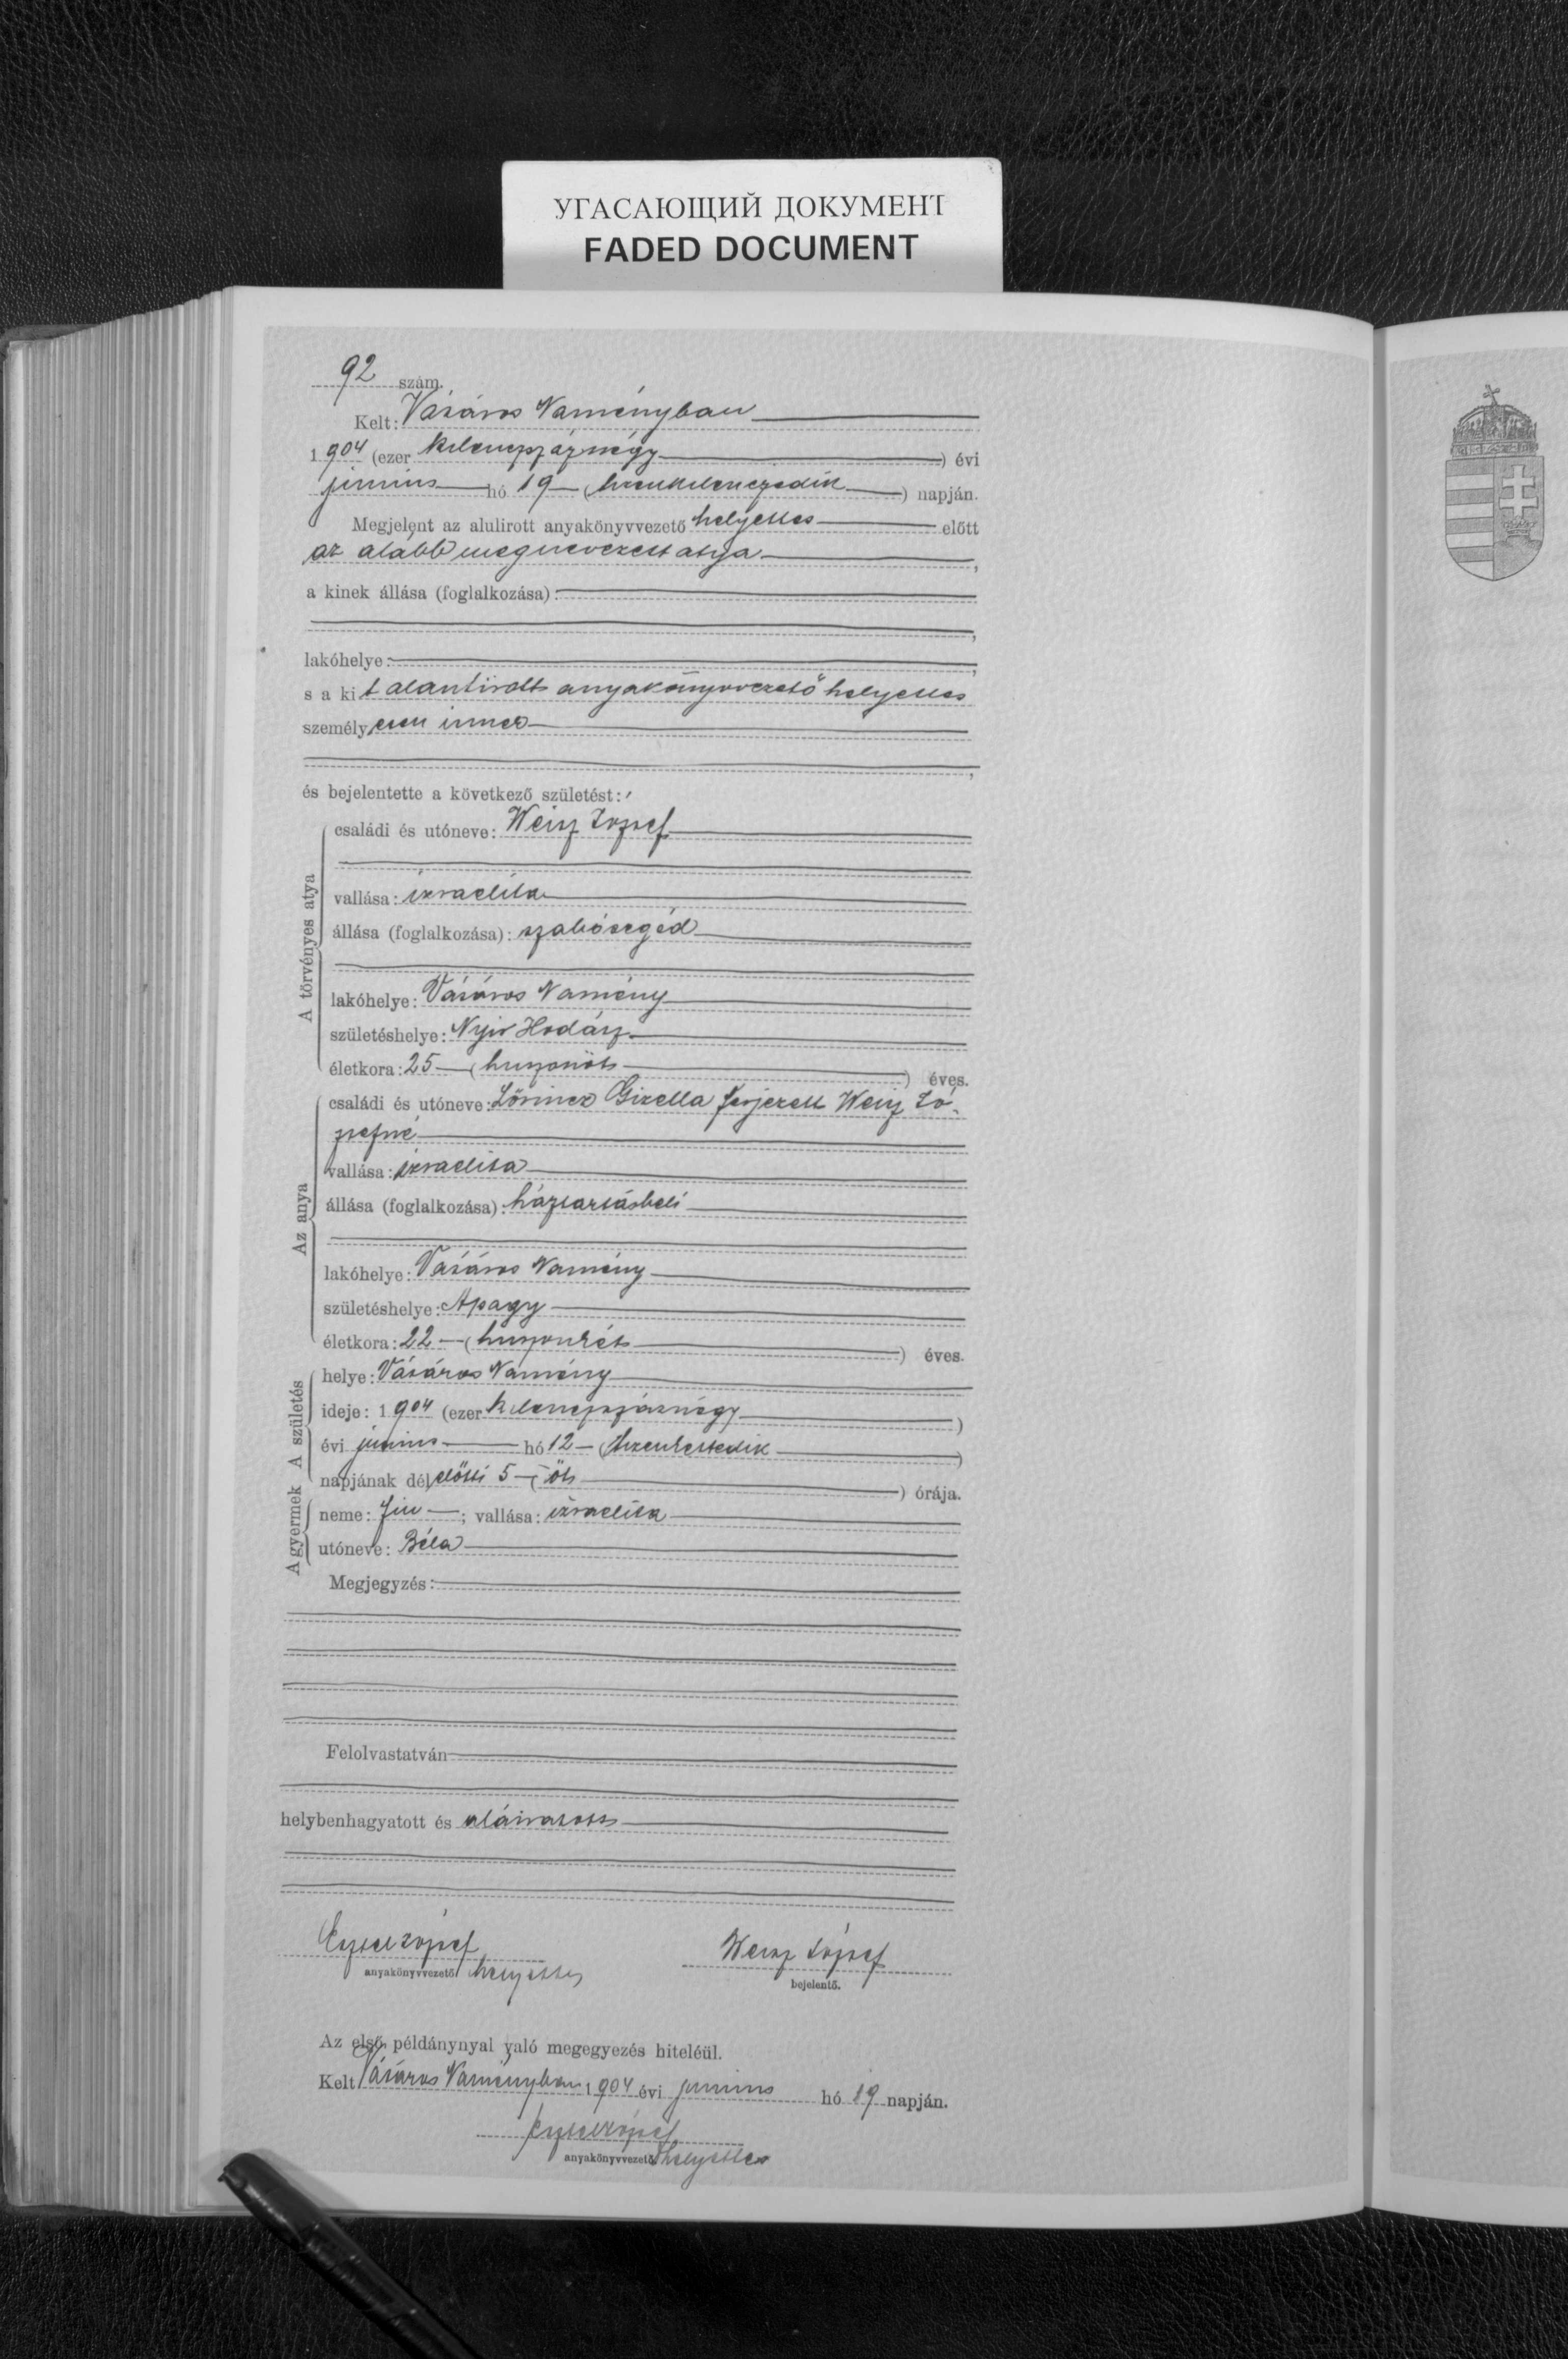 УГАСАЮЩИЙ ДОКУМЕНТ
FADED DOCUMENT
92 szám.
Kelt: Vásáros Naményban
1904 (ezer kilenczszáznégy) évi
junius hó 19 (tizenkilenczedik) napján.
Megjelent az alulirott anyakönyvvezető helyettes előtt
az alább megnevezett atya,
a kinek állása (foglalkozása):
lakóhelye:
s a kit alantirott anyakönyvvezető helyettes
személyesen ismer
és bejelentette a következő születést:
A törvényes atya
családi és utóneve: Weisz József
vallása: izraelita
állása (foglalkozása): szabósegéd
lakóhelye: Vásáros Namény
születéshelye: Nyir Hodász
életkora: 25 (huszonöt) éves.
Az anya
családi és utóneve: Lőrincz Gizella férjezett Weisz Jó-
zsefné
vallása: izraelita
állása (foglalkozása): háztartásbeli
lakóhelye: Vásáros Namény
születéshelye: Apagy
életkora: 22 (huszonkét) éves.
A születés
helye: Vásáros Namény
ideje: 1904 (ezer kilenczszáznégy)
évi junius hó 12 (tizenkettedik)
napjának délelőtti 5 (öt) órája.
A gyermek
neme: fiu; vallása: izraelita
utóneve: Béla
Megjegyzés:
Felolvastatván
helybenhagyatott és aláiratott
József Weisz József
anyakönyvvezető helyettes bejelentő.
Az első példánynyal való megegyezés hiteléül.
Kelt Vásáros Naményban 1904 évi junius hó 19 napján.
József
anyakönyvvezető helyettes